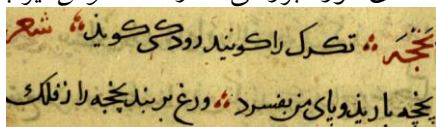 یخچه ؞ تکرک را کویند رودکی کویذ ؞ شعر
یخچه باریذ و پای من بفسرد ؞ ورغ بربند یخچه را ز فلک